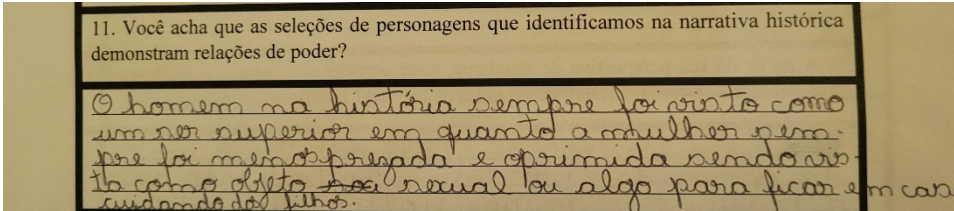 11. Você acha que as seleções de personagens que identificamos na narrativa histórica
demonstram relações de poder?
O homem na história sempre foi visto como
um ser superior em quanto a mulher sem-
pre foi menosprezada e oprimida sendo vis-
ta como objeto sexual ou algo para ficar em casa
cuidando dos filhos.